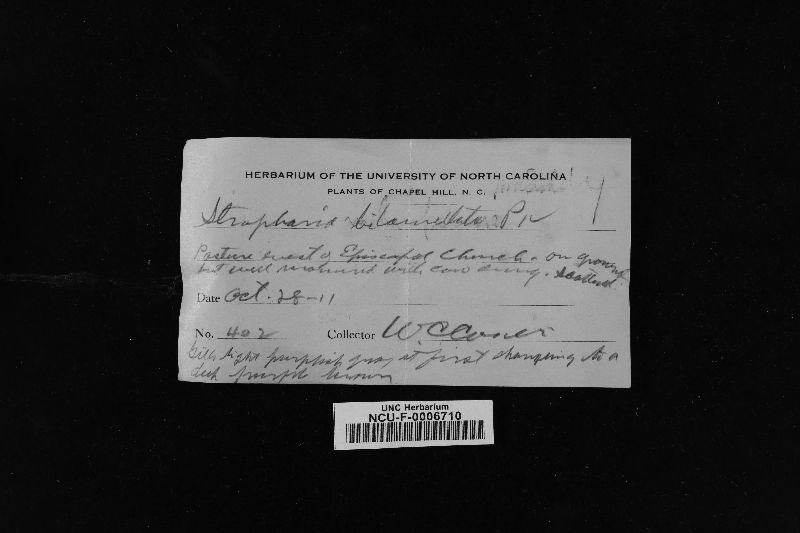 HERBARIUM OF THE UNIVERSITY OF NORTH CAROLINA
PLANTS OF CHAPEL HILL, N. C.
Stropharia bilamellata Pk
Pasture west of Episcopal Church - on ground
but well manured with cow dung. Scattered.
Date Oct. 28-11
No. 402 Collector W C Coker
Gills light purplish gray at first changing to a
deep purple brown
UNC Herbarium
NCU-F-0006710